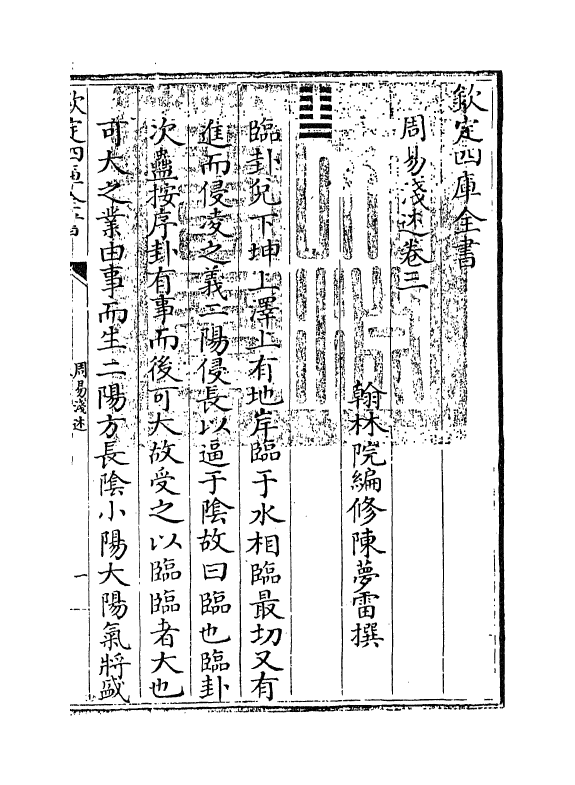 欽定四庫全書
周易淺述卷三
翰林院編修陳夢雷撰
臨卦兌下坤上澤上有地岸臨于水相臨最切又有
進而侵凌之義二陽侵長以逼于陰故曰臨也臨卦
次蠱按序卦有事而後可大故受之以臨臨者大也
可大之業由事而生二陽方長陰小陽大陽氣將盛
周易淺述
一